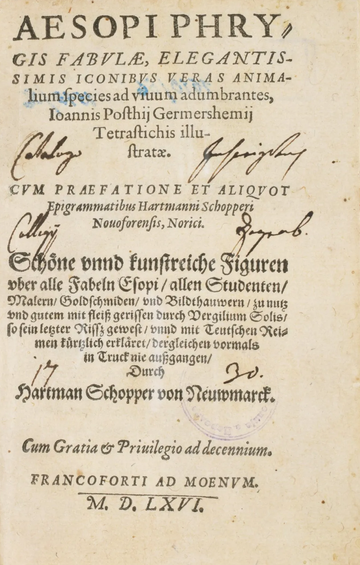 AESOPI PHRY⸗
GIS FABVLÆ, ELEGANTIS-
SIMIS ICONIBVS VERAS ANIMA-
lium species ad viuum adumbrantes,
Ioannis Posthij Germershemij
Tetrastichis illu-
stratæ.
CVM PRAEFATIONE ET ALIQVOT
Epigrammatibus Hartmanni Schopperi
Nouoforensis, Norici.
Collegij
Zagrab.
Schöne vnnd kunstreiche Figuren
vber alle Fabeln Esopi/ allen Studenten/
Malern/ Goldschmiden/ vnd Bildthauwern/ zu nutz
vnd gutem mit fleiß gerissen durch Vergilium Solis/
so sein letzter Rissz gewest/ vnnd mit Teutschen Rei-
men kürtzlich erkläret/ dergleichen vormals
in Truck nie außgangen/
Durch
17 30.
Hartman Schopper von Neuwmarck.
Cum Gratia & Priuilegio ad decennium.
FRANCOFORTI AD MOENVM.
M. D. LXVI.